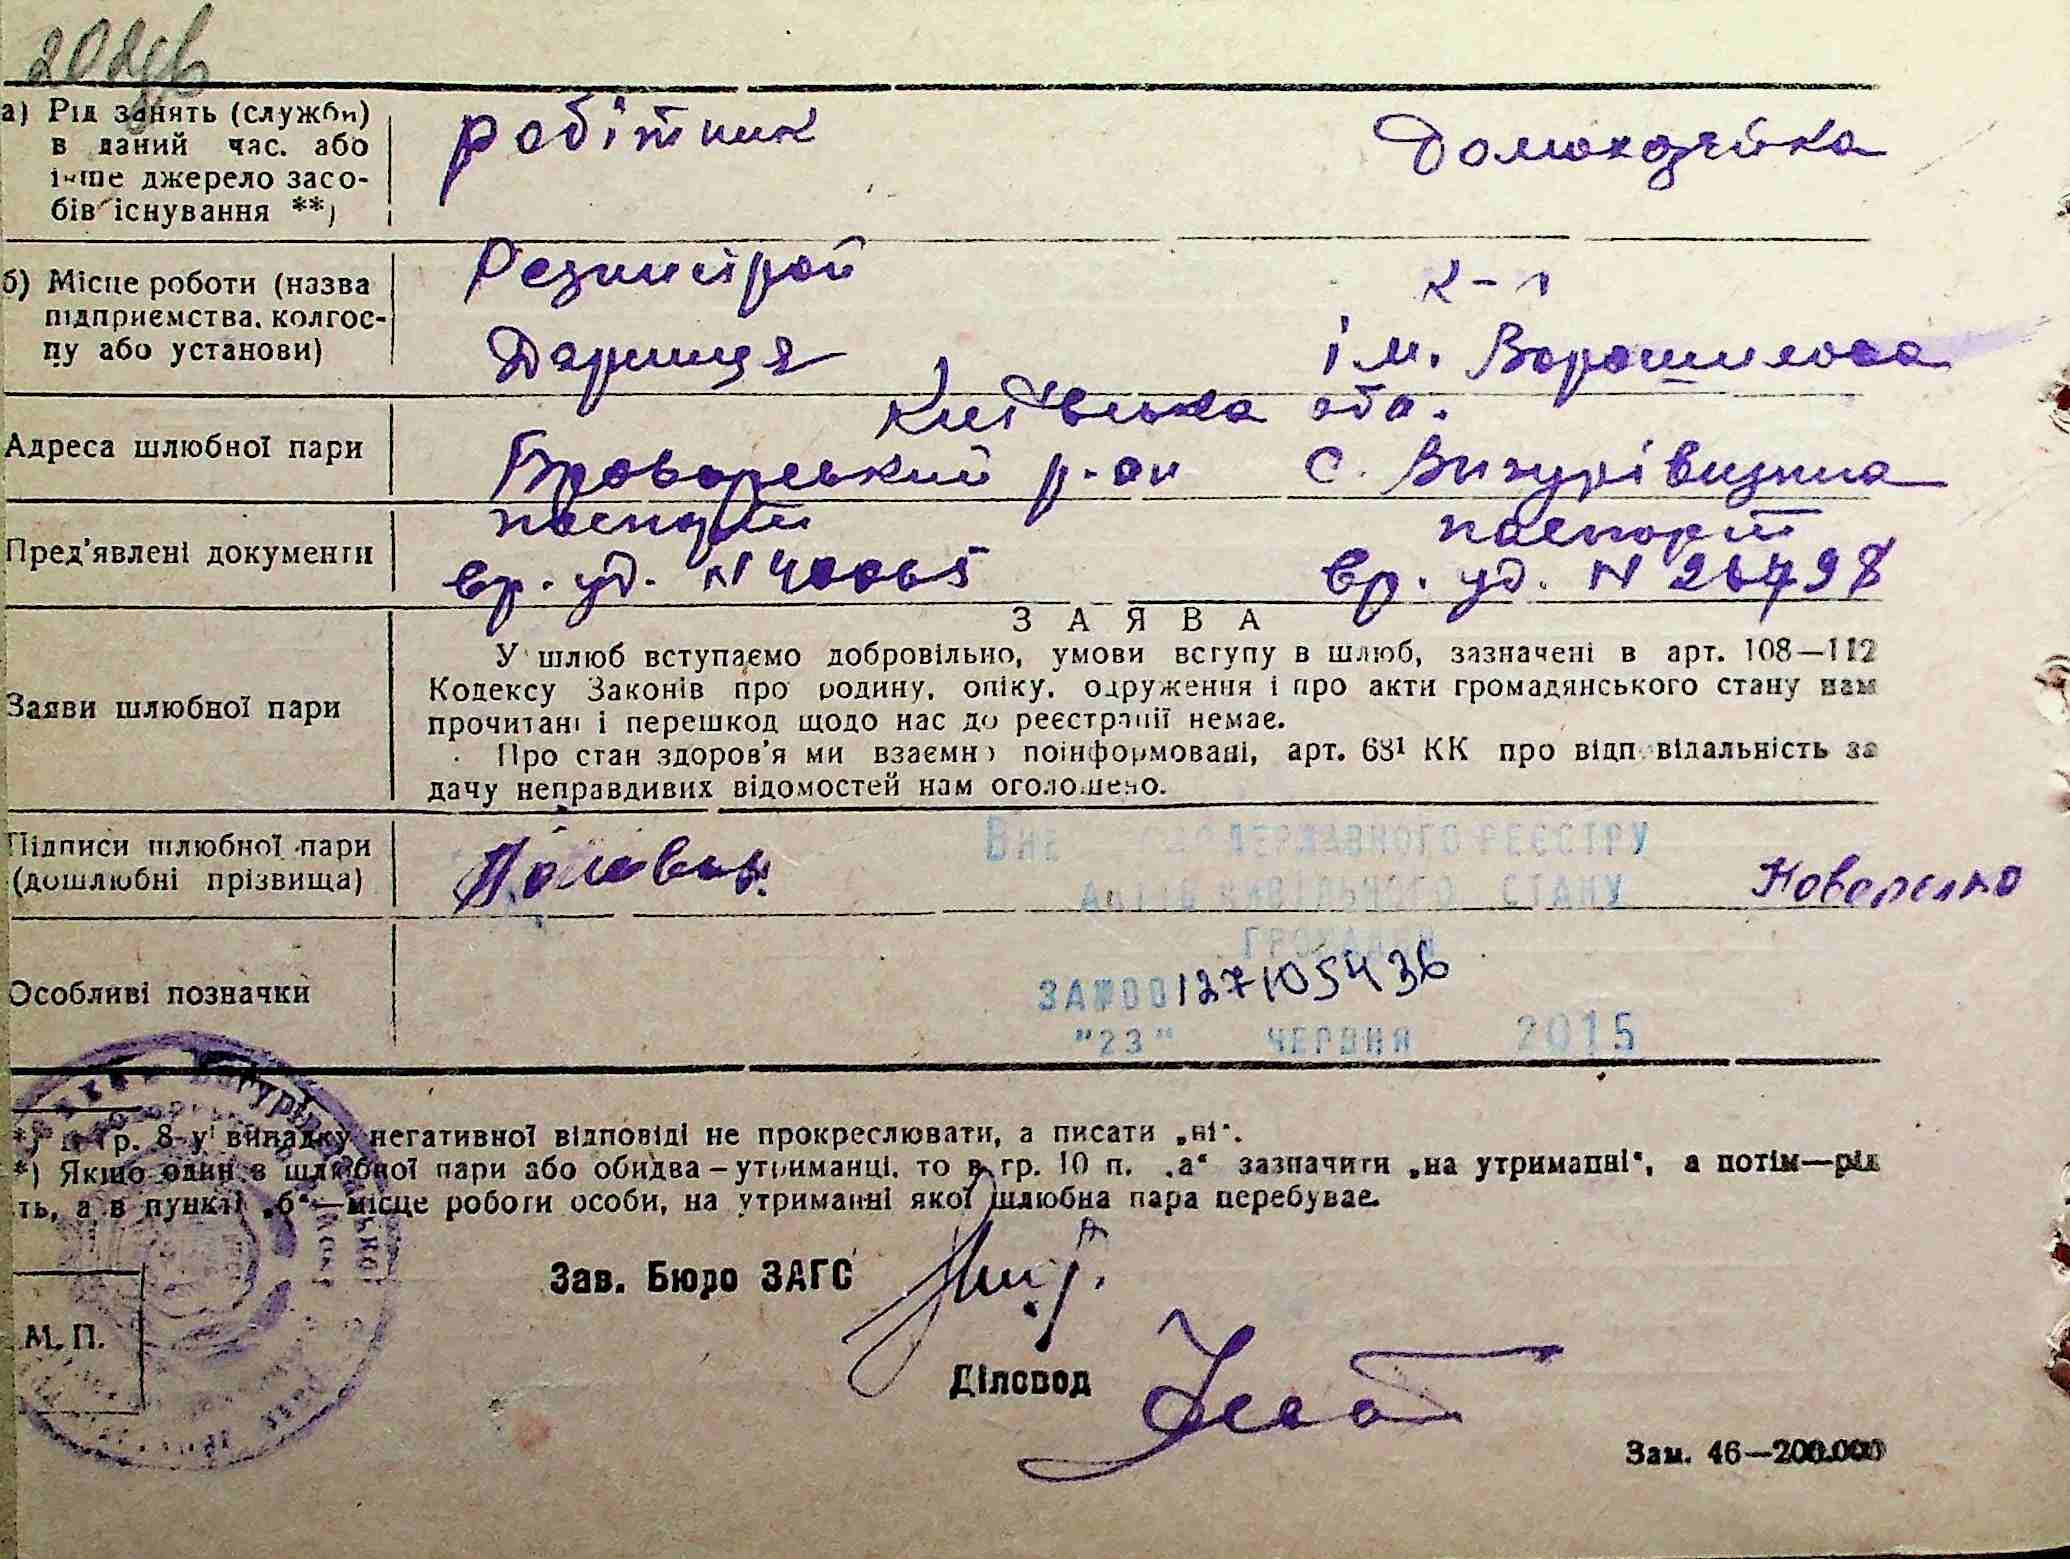 а) Рід занять (служби)
в даний час, або
інше джерело засо-
бів існування **)
робітник
Домохазяйка
б) Місце роботи (назва
підприємства, колгос-
пу або установи)
Дарниця
К-п
ім. Ворошилова
Адреса шлюбної пари
Київська обл.
Броварський р-он с. Вигурівщина
Пред'явлені документи
паспорт
вр. уд. N 40065
паспорт
вр. уд. N 26798
ЗАЯВА
Заяви шлюбної пари
У шлюб вступаємо добровільно, умови вступу в шлюб, зазначені в арт. 108—112
Кодексу Законів про родину, опіку, одруження і про акти громадянського стану нам
прочитані і перешкод щодо нас до реєстрації немає.
Про стан здоров'я ми взаємно поінформовані, арт. 68¹ КК про відповідальність за
дачу неправдивих відомостей нам оголошено.
Підписи шлюбної пари
(дошлюбні прізвища)
ДЕРЖАВНОГО РЕЄСТРУ
АКТІВ ЦИВІЛЬНОГО СТАНУ
ГРОМАДЯН
Особливі позначки
ЗА №00127105436
"23" ЧЕРВНЯ 2015
*) В гр. 8-у випадку негативної відповіді не прокреслювати, а писати „ні“.
*) Якщо один з шлюбної пари або обидва – утриманці, то в гр. 10 п. „а“ зазначити „на утриманні“, а потім—рід
ть, а в пункті „б“—місце роботи особи, на утриманні якої шлюбна пара перебуває.
Зав. Бюро ЗАГС
М. П.
Діловод
Зам. 46—200.000